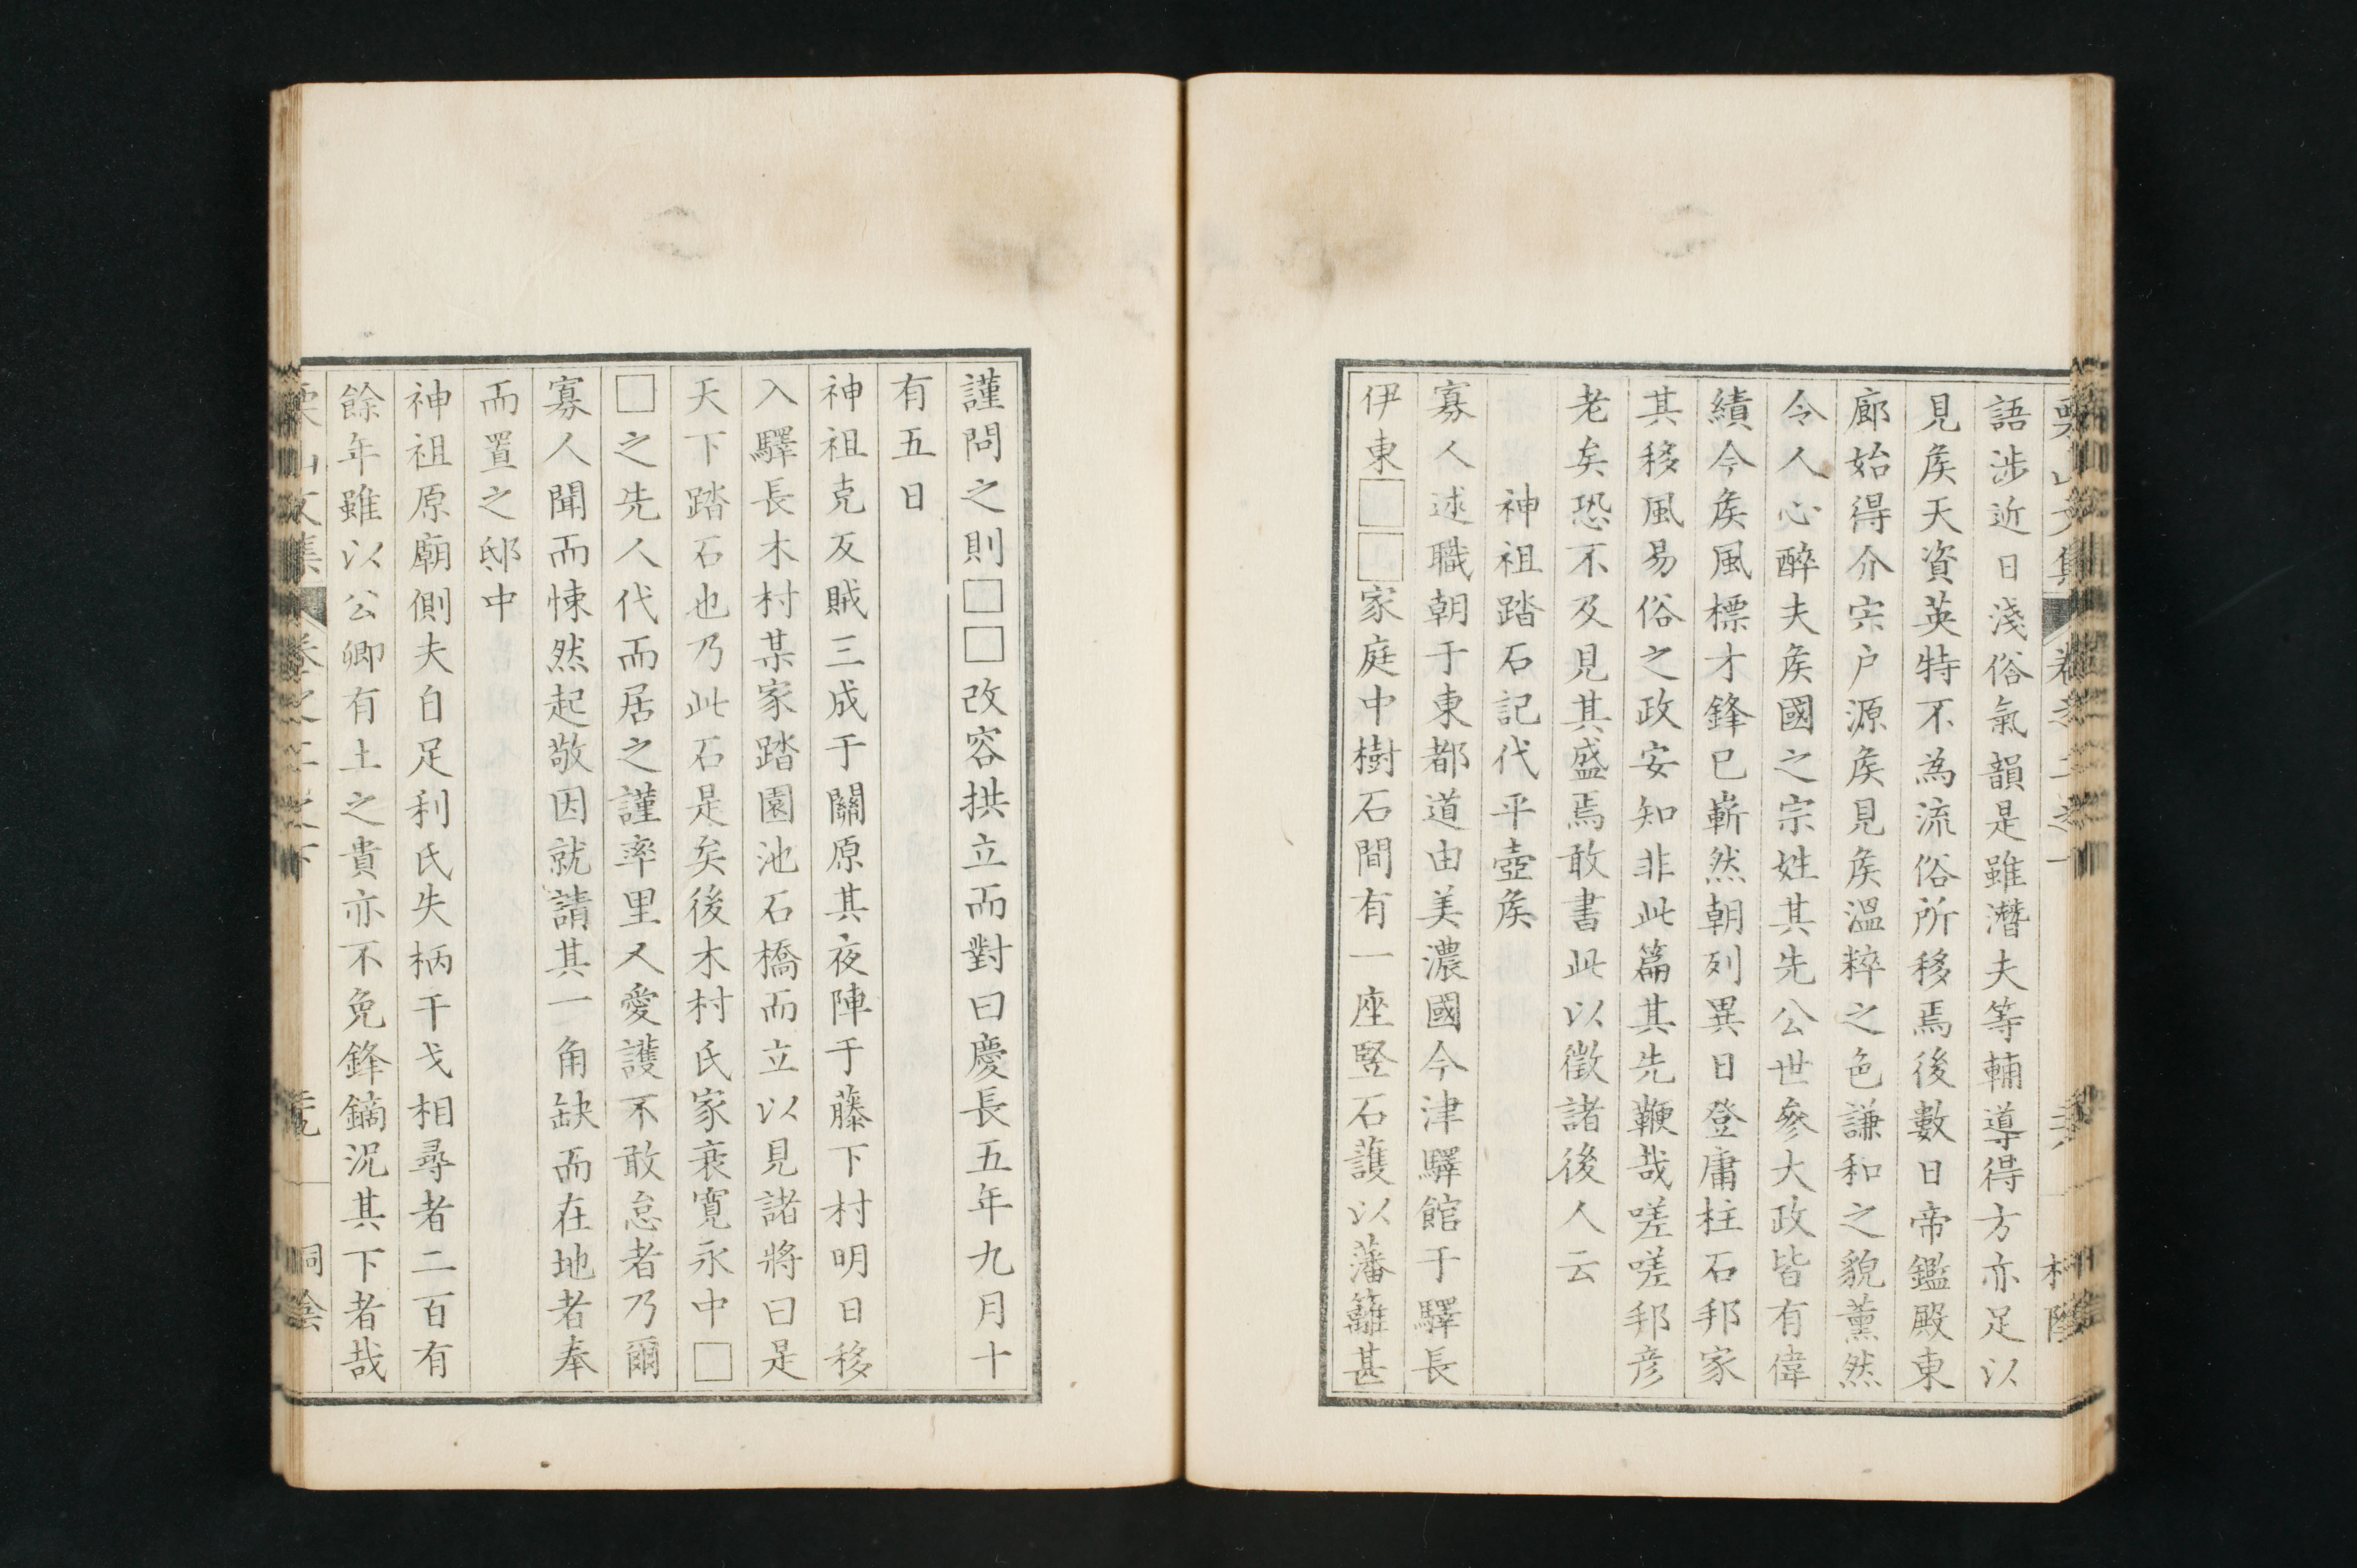 語涉近日淺俗氣韻是雖潛夫等輔導得方亦足以
見矦天資英特不為流俗所移焉後數日帝鑑殿東
廊始得介宍户源矦見矦溫粹之色謙和之貌薰然
令人心醉夫矦國之宗姓其先公世參大政皆有偉
績今矦風標才鋒已嶄然朝列異日登庸柱石邦家
其移風易俗之政安知非此篇其先鞭哉嗟嗟邦彦
老矣恐不及見其盛焉敢書此以徵諸後人云
神祖踏石記代平壺矦
寡人述職朝于東都道由美濃國今津驛館于驛長
伊東□□家庭中樹石間有一座竪石護以藩籬甚
謹問之則□□改容拱立而對曰慶長五年九月十
有五日
神祖克反賊三成于關原其夜陣于藤下村明日移
入驛長木村某家踏園池石橋而立以見諸將曰是
天下踏石也乃此石是矣後木村氏家衰寛永中□
□之先人代而居之謹率里人愛護不敢怠者乃爾
寡人聞而悚然起敬因就請其一角缺而在地者奉
而置之邸中
神祖原廟側夫自足利氏失柄干戈相尋者二百有
餘年雖以公卿有土之貴亦不免鋒鏑況其下者哉